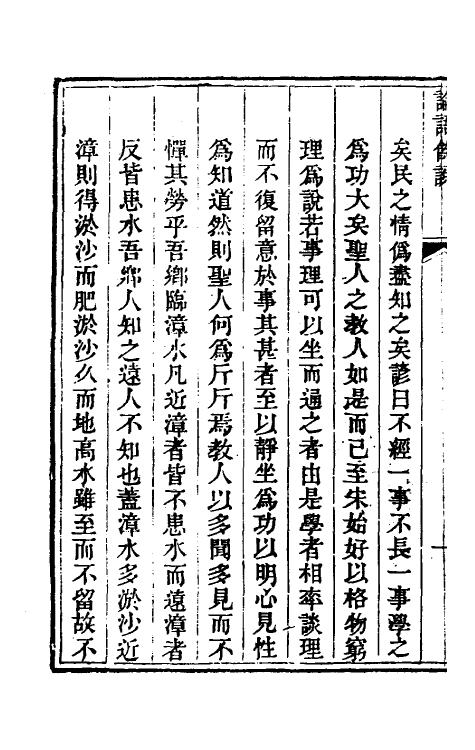 論語餘說
矣民之情僞盡知之矣諺曰不經一事不長一事學之
爲功大矣聖人之教人如是而已至宋始好以格物窮
理爲說若事理可以坐而通之者由是學者相率談理
而不復留意於事其甚者至以靜坐爲功以明心見性
爲知道然則聖人何爲斤斤焉教人以多聞多見而不
憚其勞乎吾鄉臨漳水凡近漳者皆不患水而遠漳者
反皆患水吾鄉人知之遠人不知也蓋漳水多淤沙近
漳則得淤沙而肥淤沙久而地高水雖至而不留故不